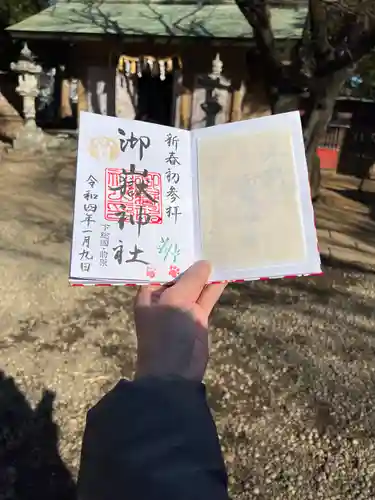 新春初参拝
御嶽神社
下総国・前原
令和四年一月九日